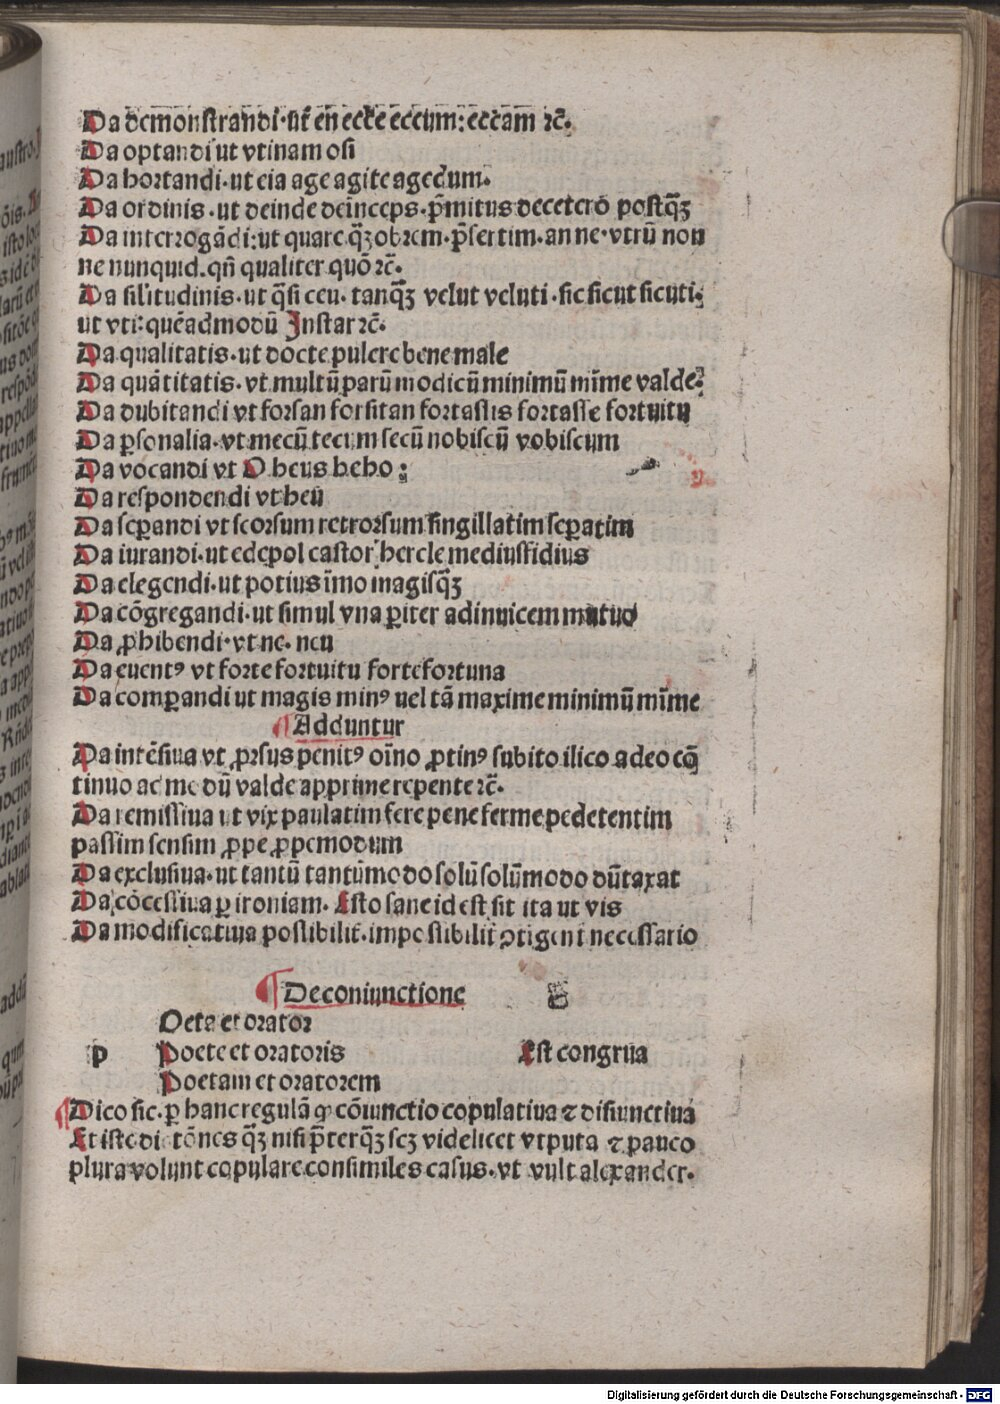 Da demonstrandi·ut en ecce eccum: eccam ⁊c̄.
Da optandi ut vtinam osi
Da hortandi·ut eia age agite agedum.
Da ordinis·ut deinde deīnceps·p̄mitus deceterō postqᷓꝫ
Da interrogādi: ut quare qᷓꝫobrem·p̄sertim·an ne·vtrū non
ne nunquid·qn̄ qualiter quō ⁊c̄.
Da sil'itudinis·ut qᷓsi ceu·tanqᷓꝫ velut veluti·sic sicut sicuti·
ut vti: quēadmodū Instar ⁊c̄.
Da qualitatis·ut docte pulcre bene male
Da quātitatis·vt multū parū modicū minimū mīme valde:
Da dubitandi vt forsan forsitan fortassis fortasse fortuitu
Da ꝑsonalia·vt mecū tecum secū nobiscū vobiscum
Da vocandi vt O heus heho:
Da respondendi vt heū
Da seꝑandi vt seorsum retrorsum singillatim seꝑatim
Da iurandi·ut edepol castor hercle mediusfidius
Da elegendi·ut potius īmo magisqᷓꝫ
Da cōgregandi·ut simul vna ꝑiter adinuicem mutuo
Da ꝓhibendi·vt ne·neu
Da euentꝰ vt forte fortuitu fortefortuna
Da comꝑandi ut magis minꝰ uel tā maxime minimū mīme
¶ Adduntur
Da intēsiua vt ꝓrsus penitꝰ oīno ꝓtinꝰ subito ilico adeo cō
tinuo ac modū valde apprime repente ⁊c̄.
Da remissiua ut vix paulatim fere pene ferme pedetentim
passim sensim ꝓpe ꝓpemodum
Da exclusiua·ut tantū tantūmodo solū solūmodo dūtaxat
Da cōcessiua ꝑ ironiam. Esto sane id est sit ita ut vis
Da modificatiua possibilit̄·impossibilit̄ ꝯtigent necessario
¶ De coniunctione
Oeta et orator
p Poete et oratoris Est congrua
Poetam et oratorem
¶ Dico sic·ꝑ hanc regulā ꝙ cōiunctio copulatiua ⁊ disiunctiua
Et iste dictōnes qᷓꝫ nisi p̄terqᷓꝫ scꝫ videlicet vtputa ⁊ pauco
plura volunt copulare consimiles casus·vt vult alexander.
Digitalisierung gefördert durch die Deutsche Forschungsgemeinschaft - DFG